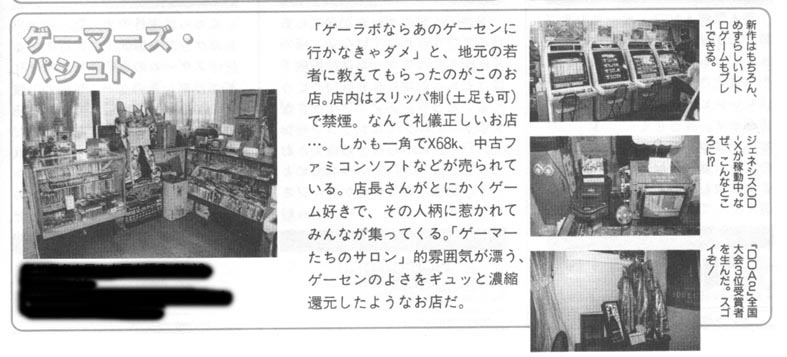 ゲーマーズ・
パシュト
「ゲーラボならあのゲーセンに
行かなきゃダメ」と、地元の若
者に教えてもらったのがこのお
店。店内はスリッパ制(土足も可)
で禁煙。なんて礼儀正しいお店
…。しかも一角でX68k、中古フ
ァミコンソフトなどが売られて
いる。店長さんがとにかくゲー
ム好きで、その人柄に惹かれて
みんなが集ってくる。「ゲーマー
たちのサロン」的雰囲気が漂う、
ゲーセンのよさをギュッと濃縮
還元したようなお店だ。
新作はもちろん、
めずらしいレト
ロゲームもプレ
イできる。
ジェネシスCD
-Xが稼動中。な
ぜ、こんなとこ
ろに!?
「DOA2」全国
大会3位受賞者
を生んだ。スゴ
イぞ!